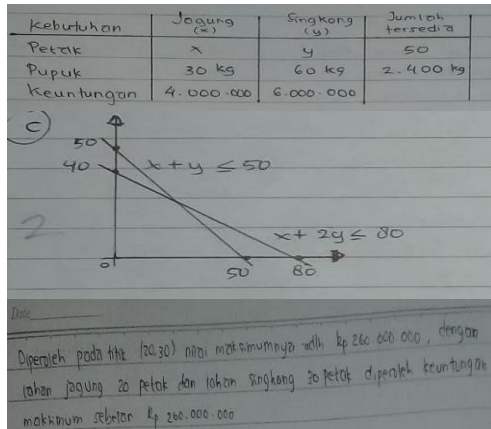 Kebutuhan Jagung (x) Singkong (y) Jumlah tersedia
Petak x y 50
Pupuk 30 kg 60 kg 2.400 kg
Keuntungan 4.000.000 6.000.000
c)
50
40 x + y ≤ 50
2
x + 2y ≤ 80
0 50 80
Date
Diperoleh pada titik (20,30) nilai maksimumnya adlh Rp 260.000.000, dengan
lahan jagung 20 petak dan lahan singkong 30 petak diperoleh keuntungan
maksimum sebesar Rp 260.000.000